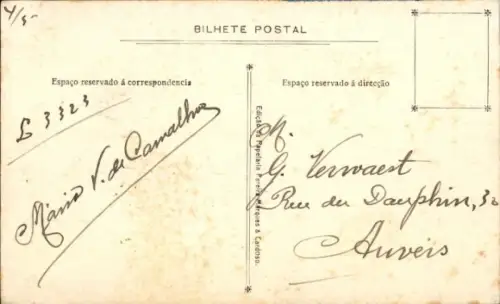 4/5-
BILHETE POSTAL
Espaço reservado á correspondencia
Espaço reservado á direcção
L 3323
Mário V. de Carvalho
Edição da Papelaria Pereira Marques & Cardoso.
M.
G. Verwaest
Rue du Dauphin, 32
Anvers